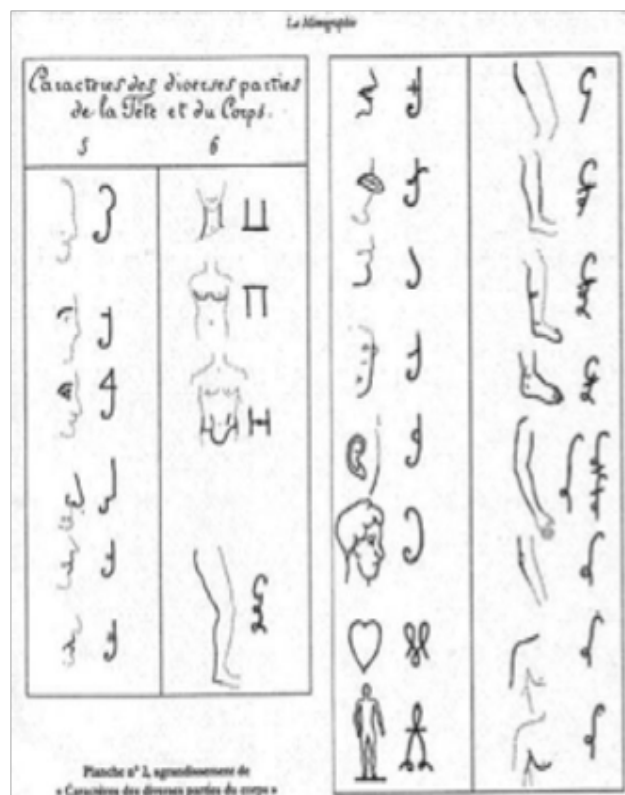 La Mimographie
Caracteres des diverses parties
de la Tête et du Corps.
5 6
Planche n° 2, agrandissement de
« Caractères des diverses parties du corps »